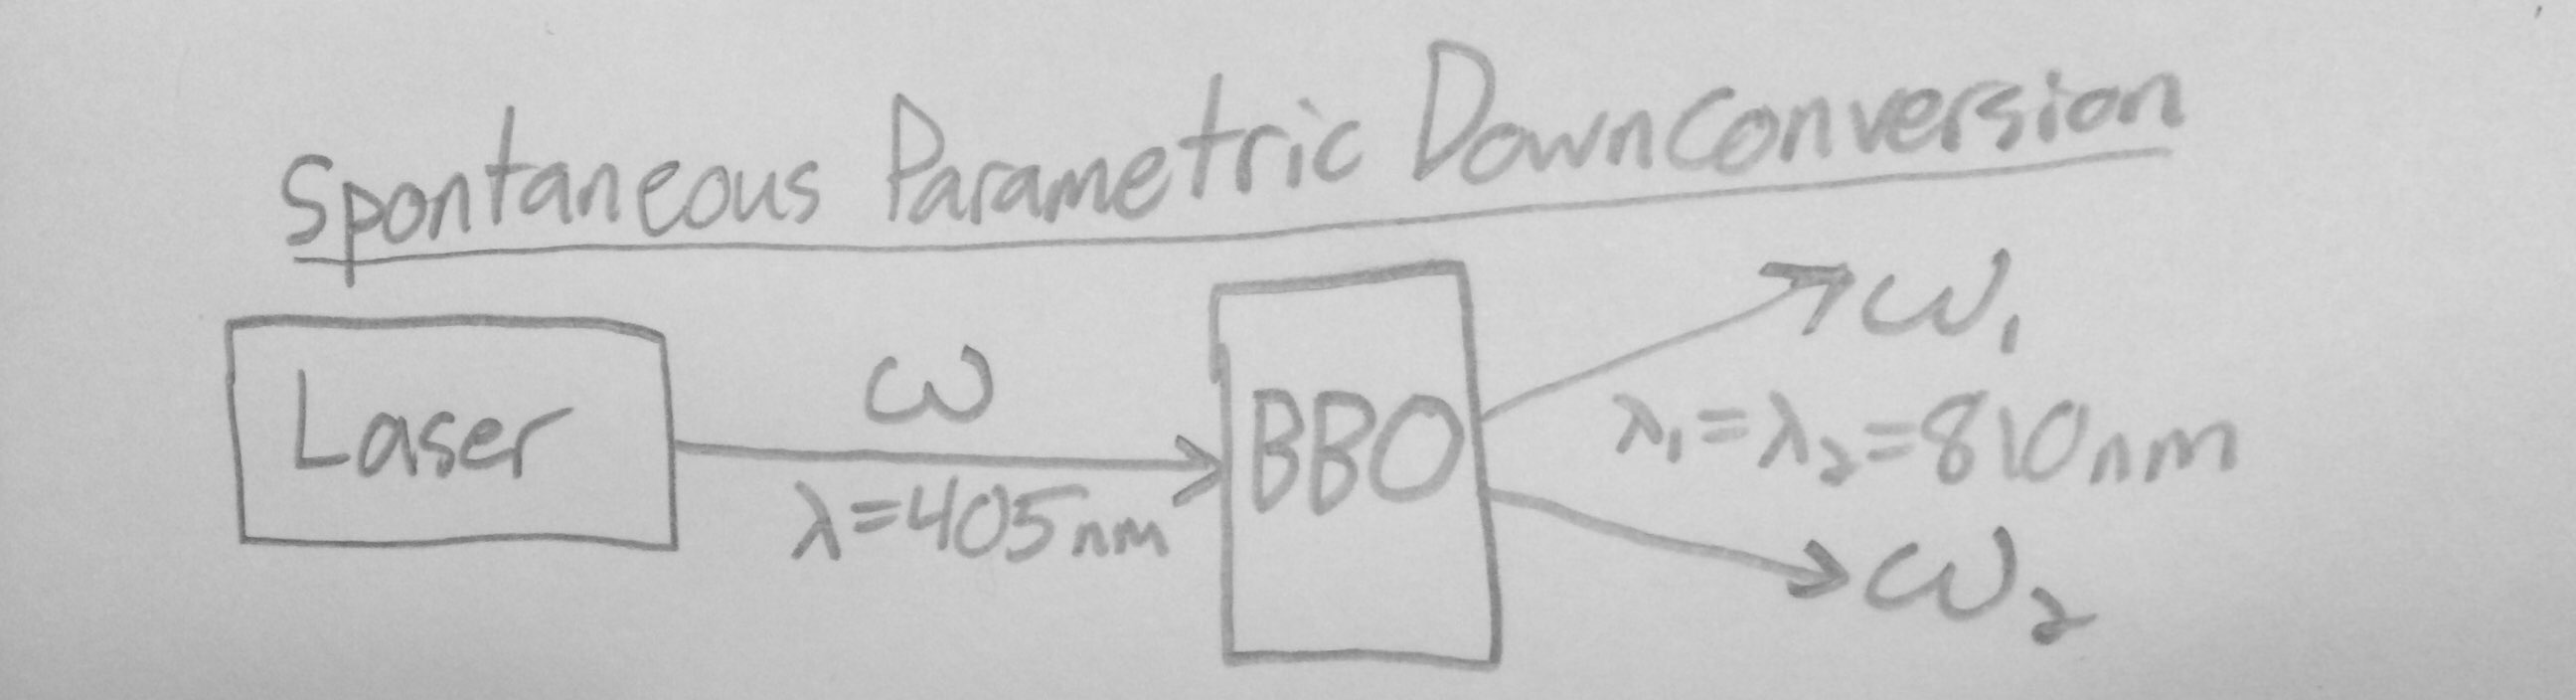 Spontaneous Parametric Downconversion
Laser
ω
λ=405nm
BBO
ω₁
λ₁=λ₂=810nm
ω₂